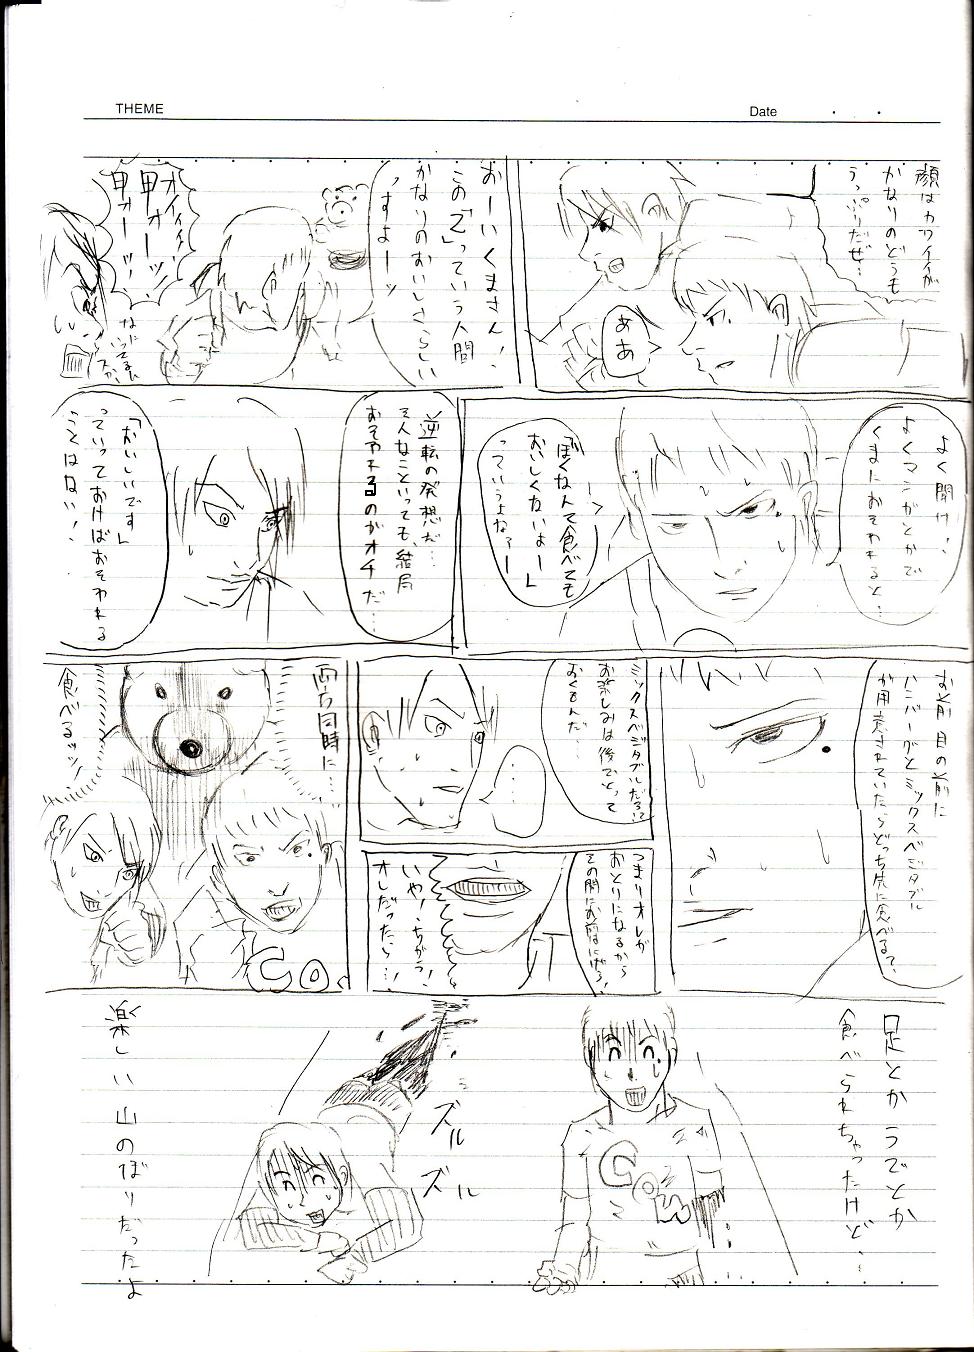 THEME
Date
顔はカワイイが
かなりのどうも
うっぷりだぜ…
ああ
おーいくまさん!
この「乙」っていう人間
かなりのおいしさらしい
っすよーッ
オイィィ!
甲ォーッ
甲ォーッ!
よく聞け!
よくマンガとかで
くまにおそわれると…
「ぼくなんて食べても
おいしくないよー」
っていうよなァー
逆転の発想だ…
そんなこといっても、結局
おそわれるのがオチだ…
「おいしいです」
っていっておけばおそわれる
ことはない!
お前、目の前に
ハンバーグとミックスベジタブル
が用意されていたらどっち先に食べるて、
ミックスベジタブルだろ!?
お楽しみは後でとって
おくもんだ…
…
つまりオレが
おとりになるから
その間にお前はにげろ!
いや!ちがう!
オレだったら…!
両方同時に…
食べるッッ!
Co
足とかうでとか
食べられちゃったけど…
Com
ズル
ズル
楽しい山のぼりだったよ